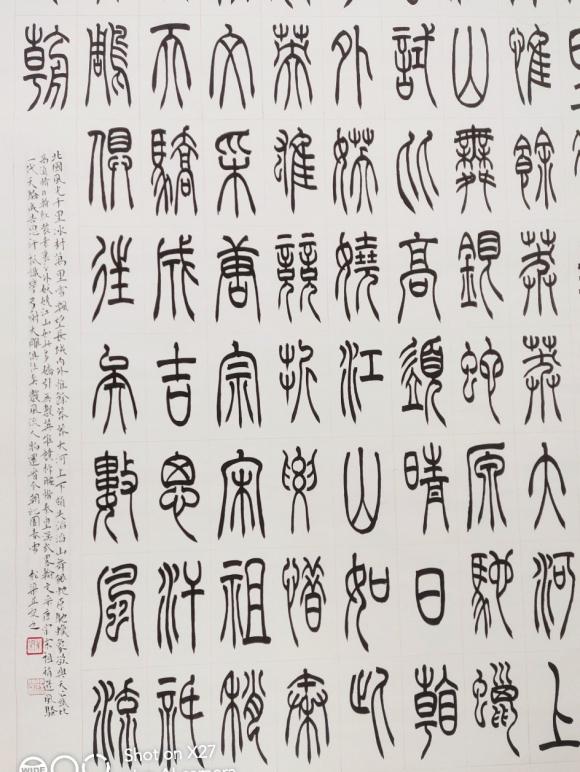 惟餘莽莽大河上
山舞銀蛇原馳蠟
試比高須晴日看
外妖嬈江山如此
英雄競折腰惜秦
文采唐宗宋祖稍
天驕成吉思汗祇
鵰俱往矣數風流
朝
北國風光千里冰封萬里雪飄望長城內外惟餘莽莽大河上下頓失滔滔山舞銀蛇原馳蠟象欲與天公試比
高須晴日看紅裝素裹分外妖嬈江山如此多嬌引無數英雄競折腰惜秦皇漢武略輸文采唐宗宋祖稍遜風騷
一代天驕成吉思汗祇識彎弓射大鵰俱往矣數風流人物還看今朝沁園春雪
WIDE
Shot on X27